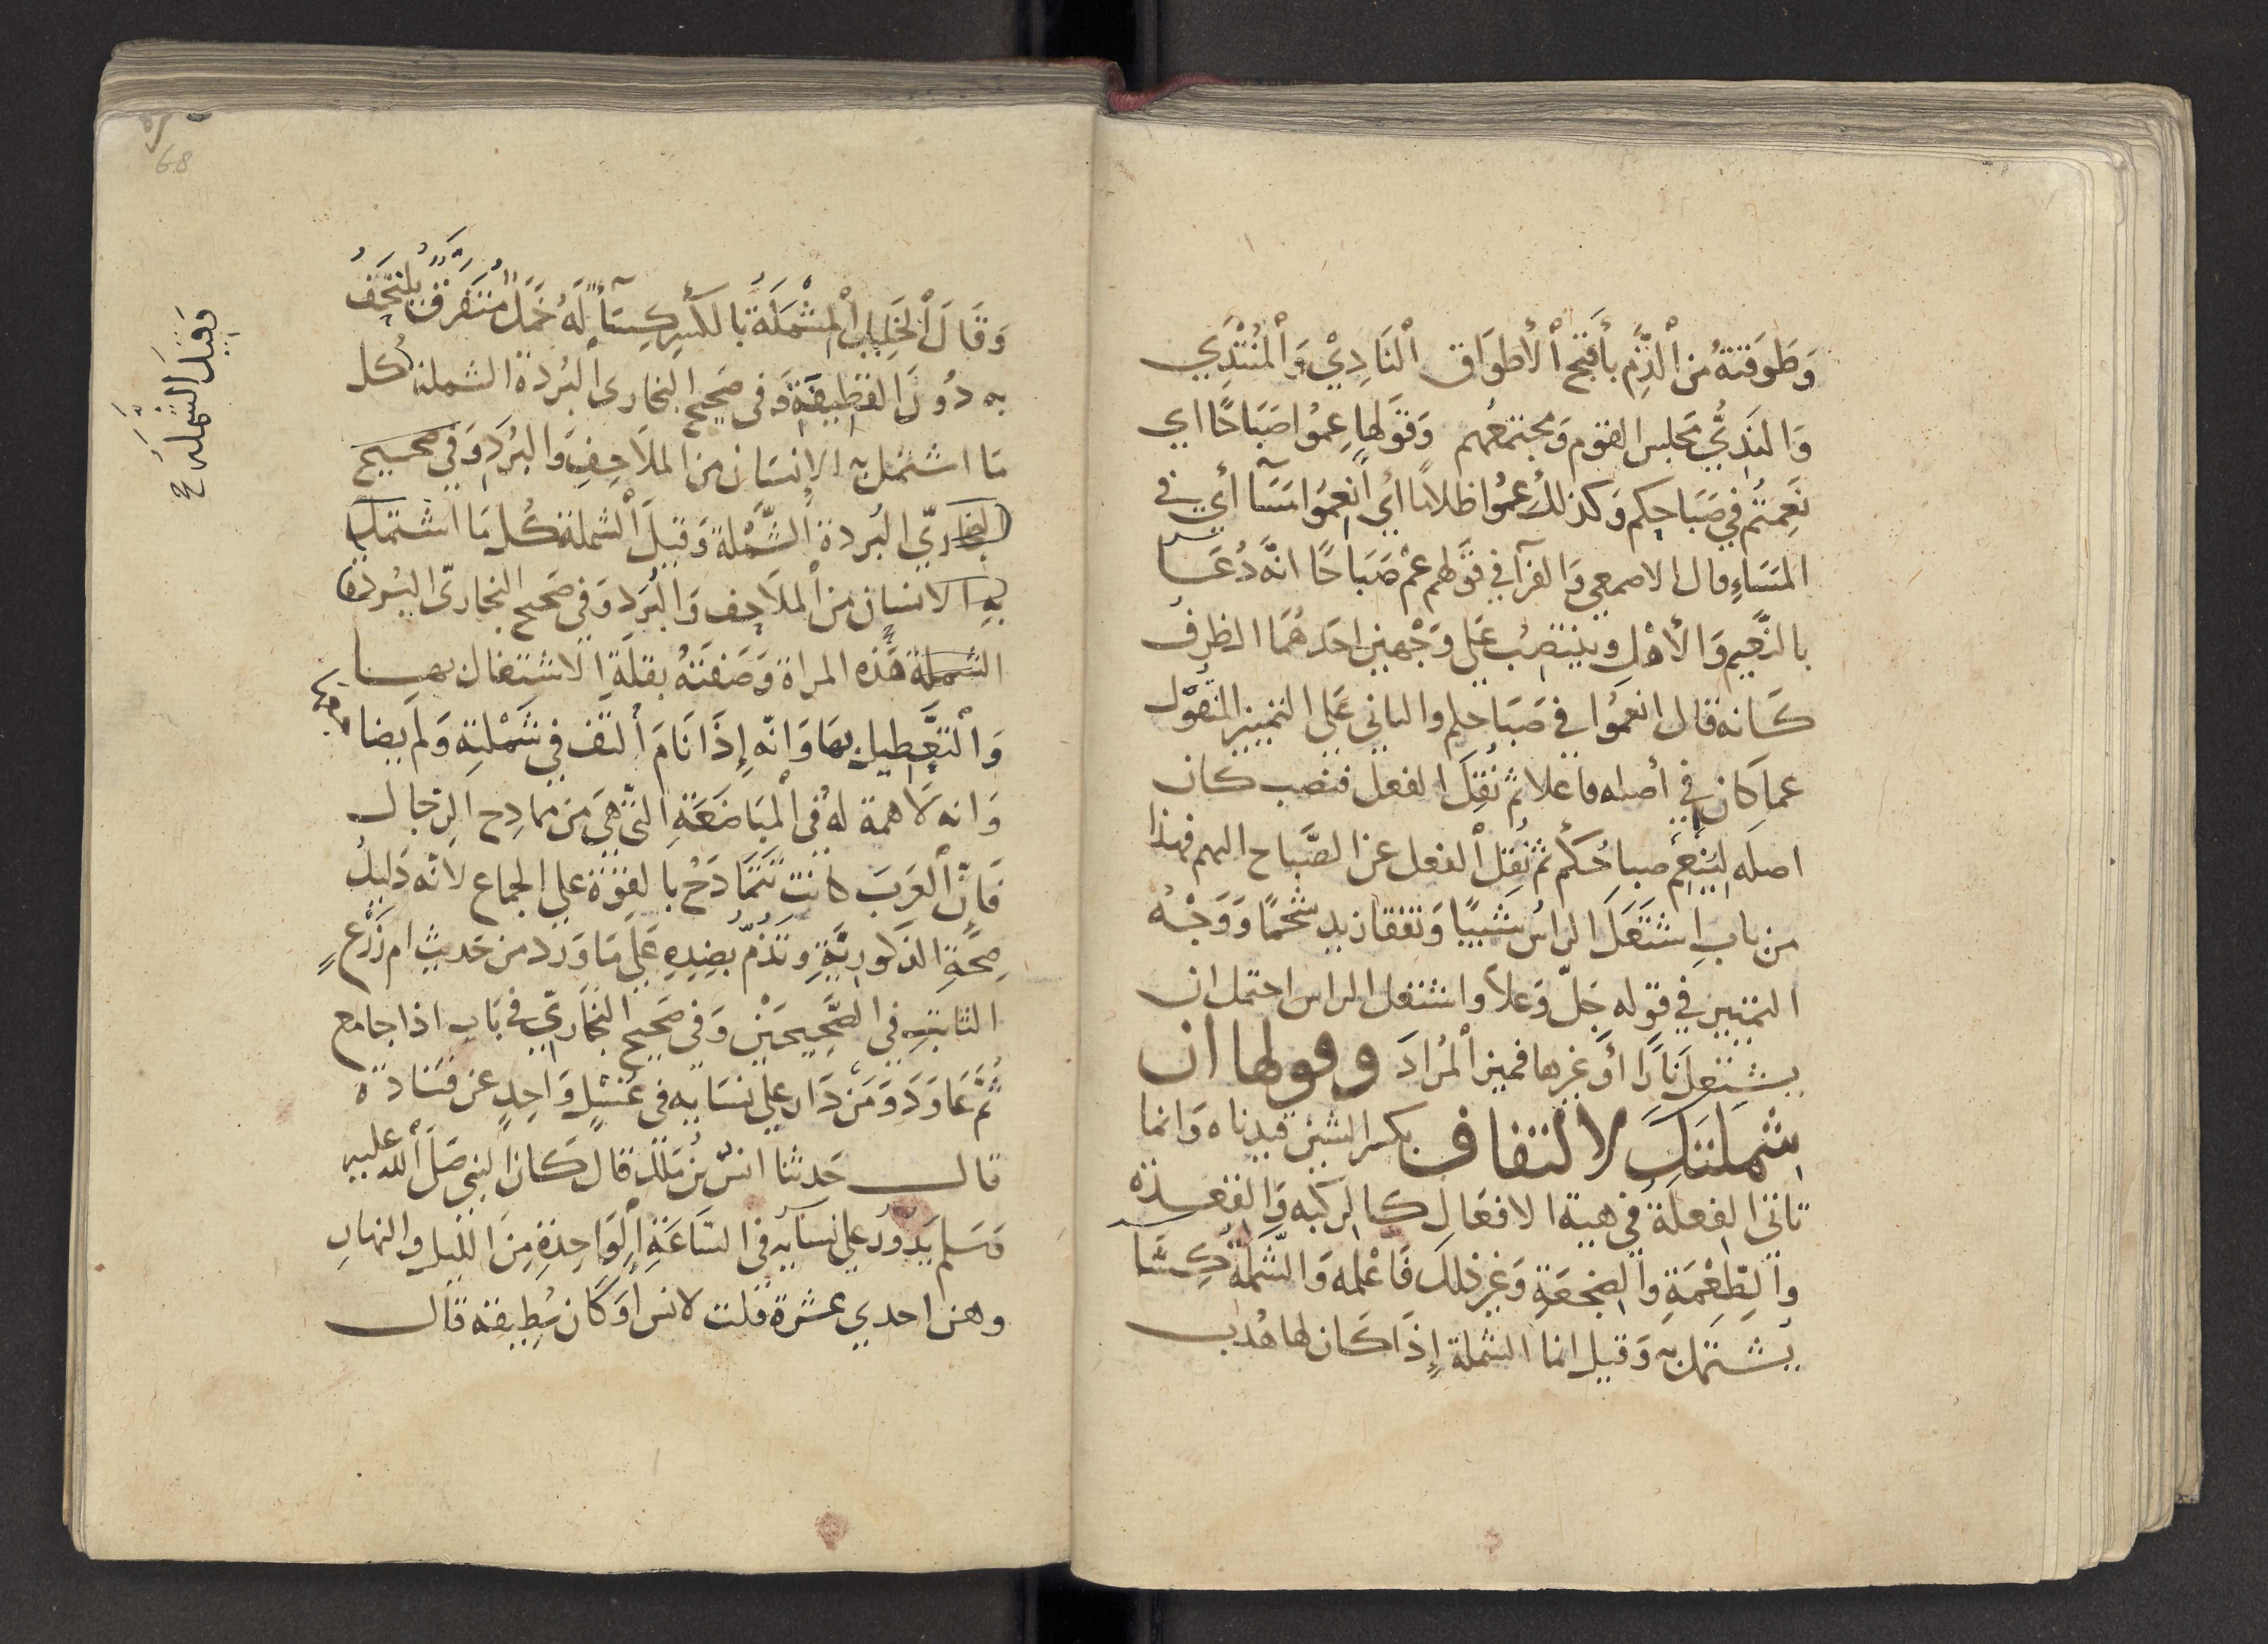 وَطَوَقتهُ من الذَّم بأَقبَح الأطوَاق النَادِيْ وَالمُنْتَدِي
وَالنَدِيُّ مَجلس القوم وَمجتمعُهم وَقولها عِمُوا صَبَاحًا اي
نَعِمتُم في صَبَاحِكم وَكذلك عِمُوا ظلامًا أي انعِمُوا مَسَآ أي في
المَسَاءِ قال الاصمعي وَالفرآ في قولهم عِمْ صَبَاحًا انَّه دُعَا
بالنَّعيم وَالأهْلِ وينتصِبُ عَلى وَجْهين احَدهُمَا الظرف
كَانه قال انعِمُوا في صَبَاحكم والثاني عَلى التمييز المنقول
عماكَان في أصله فاعلا ثم نُقِلَ الفعل فنصب كان
اصلَه ليَنعِم صباحُكم ثم نُقِل الفعل عن الصَّباح اليهم فهذا
من باب اشتَعَلَ الراس شَيْبًا وَتفقا زيد شحْمًا وَوَجْهُ
التمييز في قوله جَلّ وَعلا واشتعل الراس احتمل ان
يشتعِلَ نَارًا أَوْ غيرها فميز المُرادَ وقولها ان
شِملتَكَ لالتفاف بكسر الشين قيدناه وَانما
تاتى الفِعلةُ في هيئة الافعَالِ كالرِكبه وَالقعدة
وَالطِّعْمَةِ وَالضِجعَةِ وَغير ذلك فَاعْلمه وَالشَّملَةُ كِسَا
يُشتمَل به وَقيل انما الشملة إِذَا كَان لها هُدب
68
وَقَالَ الخَلِيل المِشْمَلَةُ بالكسر كِسَآءٌ لَهُ خَمَلٌ مُتَفَرِّقٌ يُلتحَفُ
به دُونَ القطِيفَةِ وَفي صَحيح البخارى البُردة الشملة كُل
مَا اشتمَل به الإِنسَان من المَلاَحِفِ وَالبُرَدِ وَفي صحيح
البخاريّ البُردة الشَّمْلَة وَقيلَ الشملة كُل مَا اشتمَل
بِهِ الانسَان من المَلاَحِف وَالبُرَد وَفي صَحيح البخاريّ البُردة
الشملة هَذه المراة وَصَفَتهُ بقلةِ الاشتغال بهــا
وَالتَّعطيل بهَا وَانّه إِذَا نَامَ التف في شَمْلتِه وَلم يضا جعها
وَانه لاَ همة لهُ في المُبَاضَعَةِ التّي هِيَ من ممادِح الرِجَال
فَانَّ العَرَبَ كانت تَتَمَادَحُ بالقوّة علي الجماع لانّه دَليلُ
صِحَّةِ الذكورِيَّةِ وتَذُمّ بضِدِهِ عَلي مَا وَرد من حَديث ام زَرْعٍ
الثابت في الصَّحيحَيْن وَفي صَحيح البُخَارِيّ في بَاب اذا جامع
ثُمّ عَاوَدَ وَمَن دَار علي نسَايه في غسْلٍ وَاحِدٍ عن قتَادة
قال حَدثنا انسُ بْنُ مَلكٍ قال كَان النبي صَلّى الله عليه
وَسَلم يَدُورُ علي نسآيه في السَّاعَةِ الوَاحِدةِ مِنَ الليل والنهارِ
وهن احدي عشرة قلت لانس اَوَكَان يُطِيقه قال
وَقِيلَ الشَّملَة ح